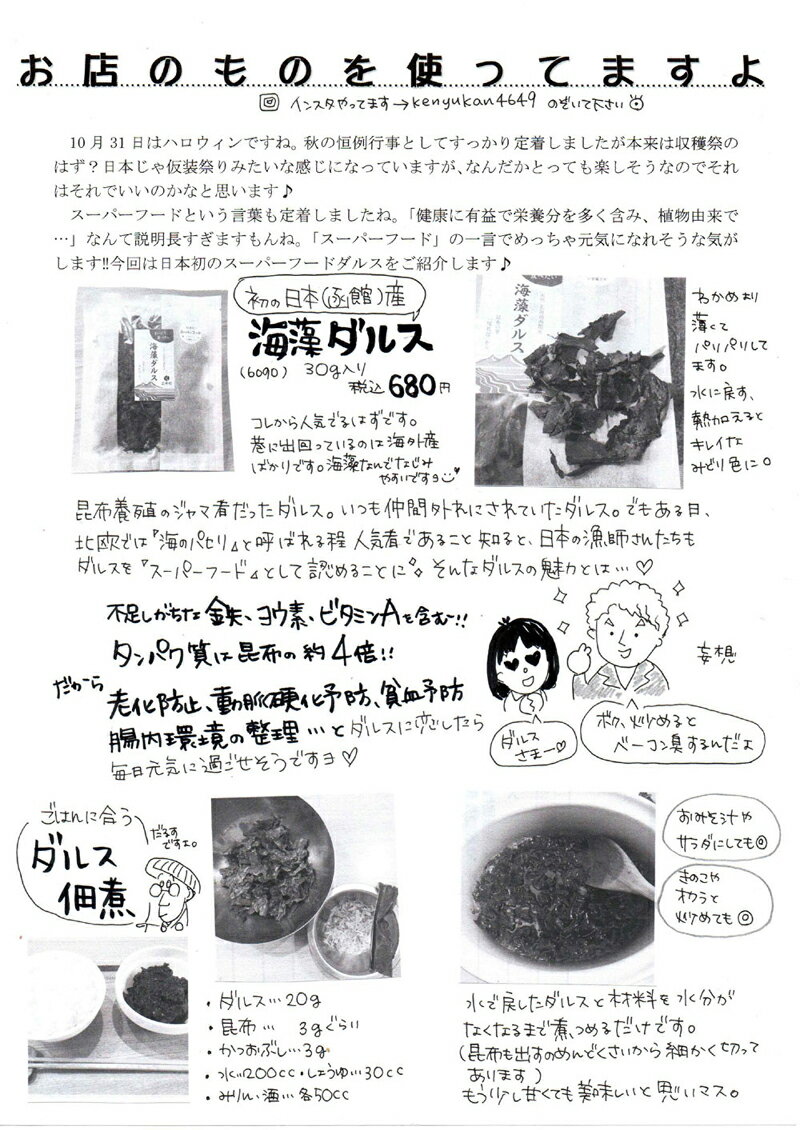 お店のものを使ってますよ
インスタやってます→kenyukan4649 のぞいて下さい
10月31日はハロウィンですね。秋の恒例行事としてすっかり定着しましたが本来は収穫祭の
はず？日本じゃ仮装祭りみたいな感じになっていますが、なんだかとっても楽しそうなのでそれ
はそれでいいのかなと思います♪
スーパーフードという言葉も定着しましたね。「健康に有益で栄養分を多く含み、植物由来で
…」なんて説明長すぎますもんね。「スーパーフード」の一言でめっちゃ元気になれそうな気が
します!!今回は日本初のスーパーフードダルスをご紹介します♪
初の日本(函館)産
海藻ダルス
(6090) 30g入り
税込 680円
コレから人気でるはずです。
巷に出回っているのは海外産
ばかりです。海藻なんでなじみ
やすいですヨ
海藻ダルス
海藻ダルス
わかめより
薄くて
パリパリして
ます。
水に戻す、
熱加えると
キレイな
みどり色に。
昆布養殖のジャマ者だったダルス。いつも仲間外れにされていたダルス。でもある日、
北欧では『海のパセリ』と呼ばれる程人気者であること知ると、日本の漁師さんたちも
ダルスを『スーパーフード』として認めることに そんなダルスの魅力とは…♡
不足しがちな鉄、ヨウ素、ビタミンAを含む〜!!
タンパク質は昆布の約4倍!!
だから
老化防止、動脈硬化予防、貧血予防
腸内環境の整理…とダルスに恋したら
毎日元気に過ごせそうですヨ♡
妄想
ダルス
さまー♡
ボク、炒めると
ベーコン臭するんだよ
ごはんに合う
ダルス
佃煮
だるす
ですよ。
おみそ汁や
サラダにしても◎
きのこや
オクラと
炒めても◎
・ダルス…20g
・昆布… 3gぐらい
・かつおぶし…3g
・水…200cc・しょうゆ…30cc
・みりん・酒…各50cc
水で戻したダルスと材料を水分が
なくなるまで煮つめるだけです。
(昆布も出すのめんどくさいから細かく切って
あります)
もう少し甘くても美味しいと思いマス。